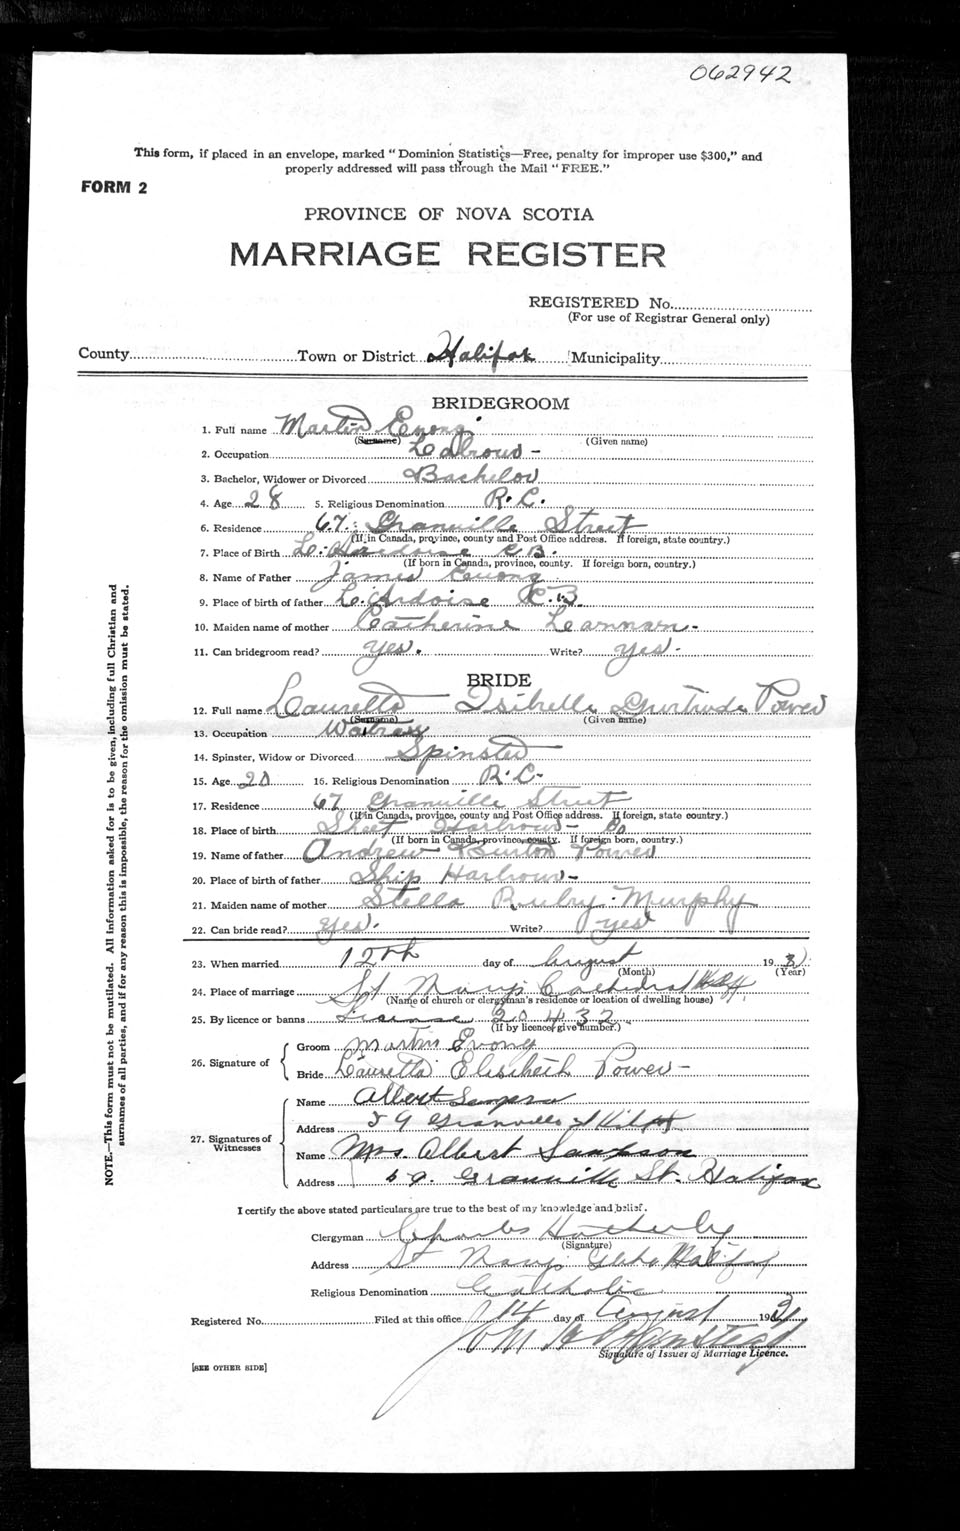 062942
This form, if placed in an envelope, marked " Dominion Statistics—Free, penalty for improper use $300," and
properly addressed will pass through the Mail " FREE."
FORM 2
PROVINCE OF NOVA SCOTIA
MARRIAGE REGISTER
REGISTERED No.
(For use of Registrar General only)
County Town or District Halifax Municipality
BRIDEGROOM
1. Full name Martin
(Surname) (Given name)
2. Occupation
3. Bachelor, Widower or Divorced Bachelor
4. Age 28 5. Religious Denomination R. C.
6. Residence 67 Granville Street
(If in Canada, province, county and Post Office address. If foreign, state country.)
7. Place of Birth C.B.
(If born in Canada, province, county. If foreign born, country.)
8. Name of Father James
9. Place of birth of father L'Ardoise C.B.
10. Maiden name of mother Catherine
11. Can bridegroom read? yes. Write? yes.
BRIDE
12. Full name Lauretta Isibelle Gurtrude Power
(Surname) (Given name)
13. Occupation Waitress
14. Spinster, Widow or Divorced Spinster
15. Age 20 16. Religious Denomination R. C.
17. Residence 67 Granville Street
(If in Canada, province, county and Post Office address. If foreign, state country.)
18. Place of birth Sheet Harbour
(If born in Canada, province, county. If foreign born, country.)
19. Name of father Andrew Burton Power
20. Place of birth of father Ship Harbour
21. Maiden name of mother Stella Rouby Murphy
22. Can bride read? yes. Write? yes
23. When married 12th day of August 193
(Month) (Year)
24. Place of marriage St Mary's Cathedral Hfx
(Name of church or clergyman's residence or location of dwelling house)
25. By licence or banns License 20432
(If by licence give number.)
26. Signature of Groom Martin Evong
Bride Lauretta Elisibeth Power
27. Signatures of Witnesses Name Albert
Address 59 Granville St
Name Mrs Albert Sampson
Address 59. Granville St. Halifax
I certify the above stated particulars are true to the best of my knowledge and belief.
Clergyman Charles
(Signature)
Address St Marys Glebe Halifax
Religious Denomination Catholic
Registered No. Filed at this office 14 day of August 193
Signature of Issuer of Marriage Licence.
[SEE OTHER SIDE]
NOTE.—This form must not be mutilated. All information asked for is to be given, including full Christian and
surnames of all parties, and if for any reason this is impossible, the reason for the omission must be stated.